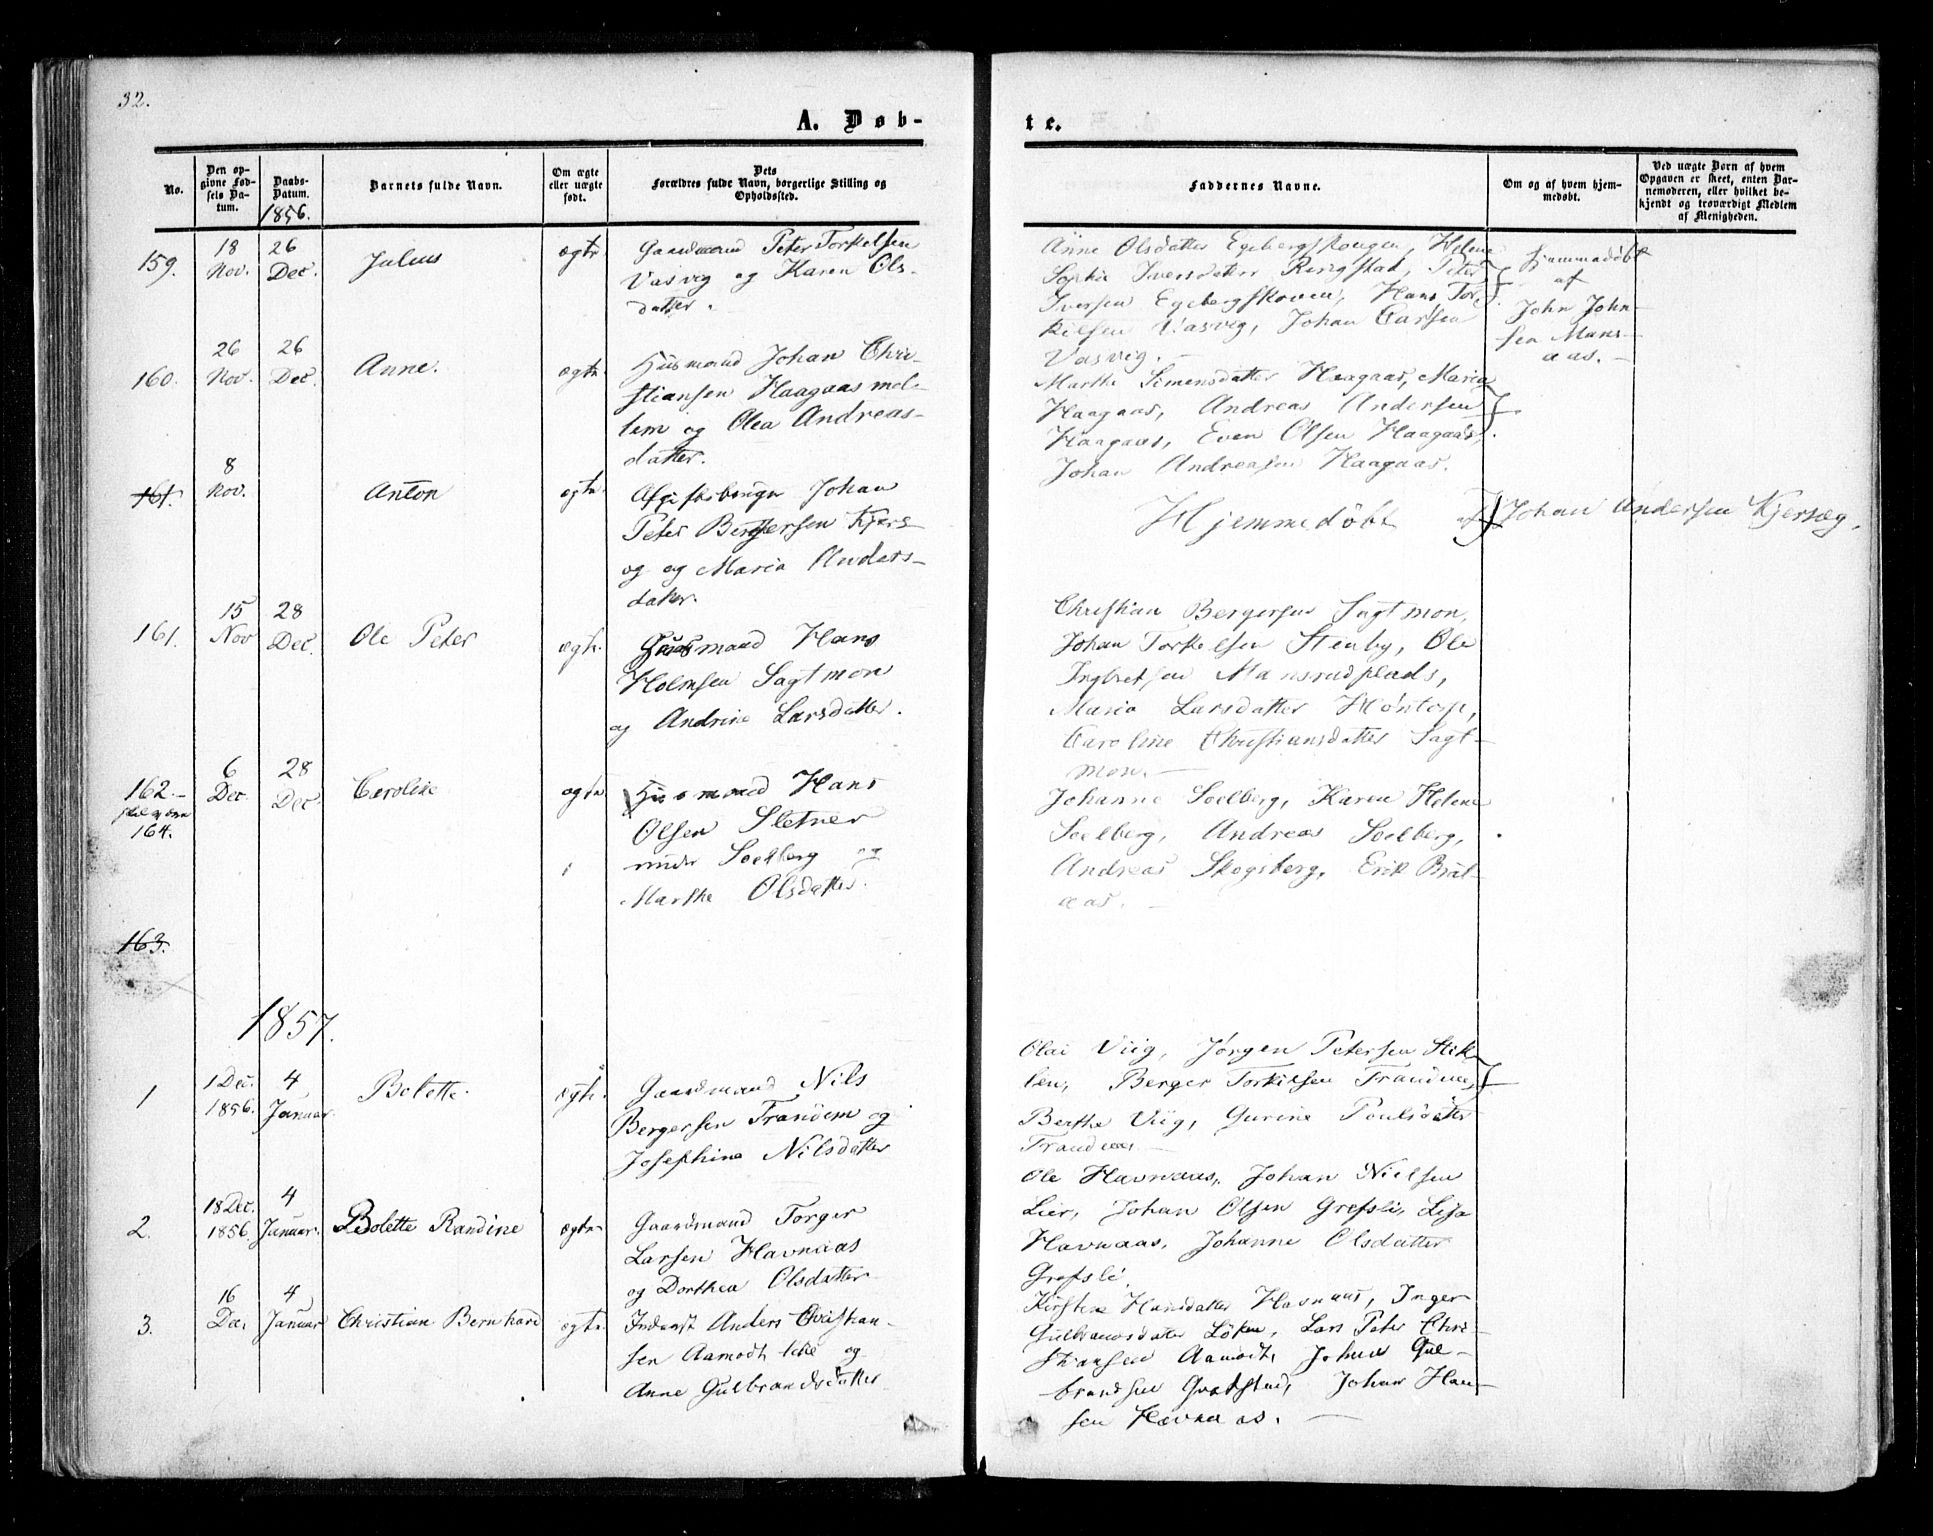 32.
A. Døb-
te.
No.
Den op-
givne Fød-
sels Da-
tum.
Daabs-
Datum.
1856.
Barnets fulde Navn.
Om ægte
eller uægte
født.
Dets
Forældres fulde Navn, borgerlige Stilling og
Opholdssted.
Faddernes Navne.
Om og af hvem hjem-
medøbt.
Ved uægte Børn af hvem
Opgaven er skeet, enten Bar-
nemoderen, eller hvilket be-
kjendt og troværdigt Medlem
af Menigheden.
159.
18
Nov.
26
Dec.
Julius
ægte.
Gaardmand Peter Torkelsen
Vasvig og Karen Ols-
datter.
Anne Olsdatter Egebergskougen, Helene
Sophie Iversdatter Ringstad, Peter
Iversen Egebergskoven, Hans Tor-
kilsen Vasvig, Johan Carlsen
Vasvig.
hjemmedøbt
af
John John-
sen Mans-
aas.
160.
26
Nov.
26
Dec.
Anne.
ægte
Huusmand Johan Chri-
stiansen Haagaas mel-
lem og Olea Andreas-
datter.
Marthe Simensdatter Haagaas, Maria
Haagaas, Andreas Andersen
Haagaas, Even Olsen Haagaas,
Johan Andreasen Haagaas.
161.
8
Nov.
Anton
ægte
Johan
Peter Bergersen Kjers-
og og Maria Anders-
datter.
Hjemmedøbt af Johan Andersen Kjersæg.
161.
15
Nov
28
Dec.
Ole Peter
ægte.
Huusmand Hans
Holmsen Sagtmon
og Andrine Larsdatter.
Christian Bergersen Sagtmon,
Johan Torkelsen Stenby, Ole
Ingbretsen Mansrudplads,
Maria Larsdatter Høntorp,
Caroline Christiansdatter Sagt-
mon.
162.
skal være
164.
6
Dec.
28
Dec.
Caroline
ægte
Huusmand Hans
Olsen Sletner
under Soelberg og
Marthe Olsdatter.
Johanne Soelberg, Karen Helene
Soelberg, Andreas Soelberg,
Andreas Skogsberg, Erik Brat-
aas.
163.
1857.
1
1 Dec.
1856.
4
Januar
Bolette.
ægte.
Gaardmand Nils
Bergersen Trandem og
Josephine Nilsdatter
Olai Viig, Jørgen Petersen Stik-
len, Berger Torkilsen Trandem,
Berthe Viig, Gurine Poulsdatter
Trandem
2.
18 Dec.
1856
4
Januar.
Bolette Randine
ægte
Gaardmand Torger
Larsen Havnaas
og Dorthea Olsdatter
Ole Havnaas, Johan Nielsen
Lier, Johan Olsen Grefsli, Lisa
Havnaas, Johanne Olsdatter
Grefsli
3.
16
Dec.
4
Januar
Christian Bernhard
ægte.
Inderst Anders Christian-
sen Aamodt og
Anne Gulbrandsdatter
Kirstine Hansdatter Havnaas, Inger
Gulbrandsdatter Löken, Lars Peter Chri-
stiansen Aamodt, Johan Gul-
brandsen Johan Han-
sen Havnaas.